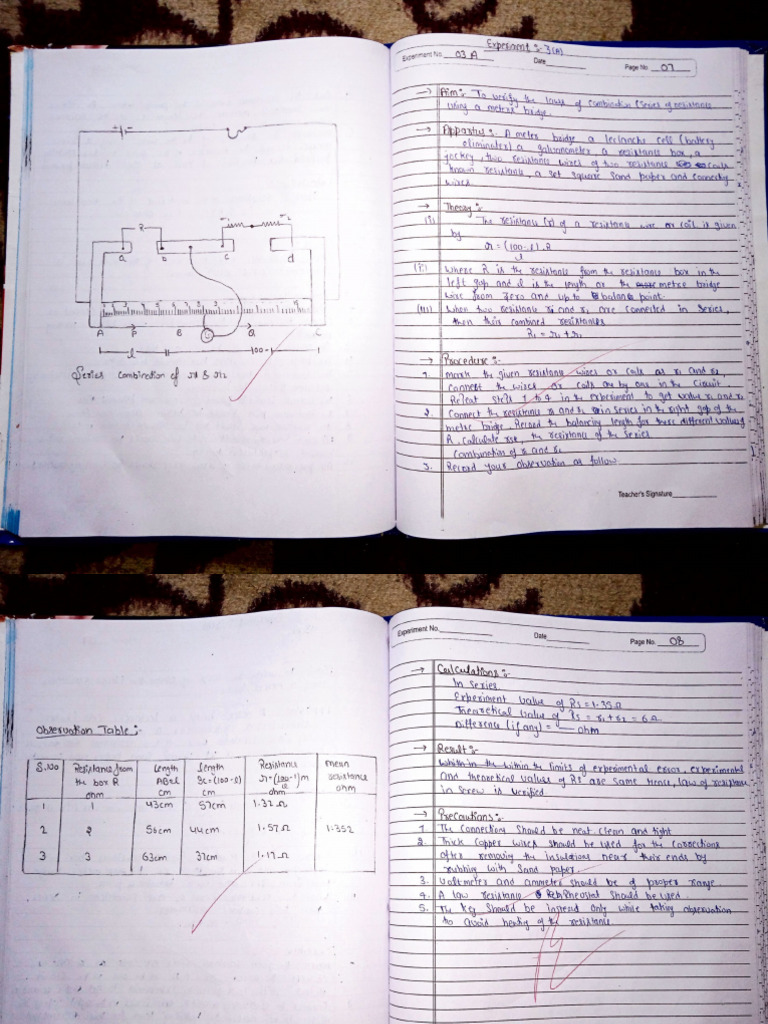 Experiment :- 3(A)
Experiment No. 03 A
Date
Page No. 07
R
r1
r2
a
b
c
d
A
P
B
G
Q
C
l
100-l
Series Combination of r1 & r2
→ Aim:- To verify the laws of combination (Series of resistance
using a metre bridge.
→ Apparatus:- A meter bridge a leclanche cell (battery
eliminater) a galvanometer a resistance box, a
jockey, two resistance wires of two resistance coils
known resistance, a set square Sand paper and connectig
wires.
→ Theory:-
(i) The resistance (r) of a resistance wire or coil is given
by
r = (100-l).R
l
(ii) Where R is the resistance from the resistance box in the
left gap and l is the length of the metre bridge
wire from zero and up to balance point.
(iii) When two resistance r1 and r2 are connected in series,
then their combined resistance
Rs = r1 + r2
→ Procedure:-
1. mark the given resistance wires or coils as r1 and r2,
Connect the wires or coils one by one in the Circuit.
Releat steps 1 to 4 in the experiment to get value r1 and r2
2. Connect the resistance r1 and r2 in series in the right gap of the
metre bridge. Record the balancing length for three different values of
R, calculate the resistance of the series
Combination of r1 and r2
3. Record your observation as follow
Teacher's Signature
Experiment No.
Date
Page No. 08
Observation Table:-
S.No
Resistance from the box R ohm
Length AB=l cm
Length BC=(100-l) cm
Resistance r=(100-l)m l ohm
mean resistance ohm
1 1 43cm 57cm 1.32 Ω
2 2 56cm 44cm 1.57 Ω 1.352
3 3 63cm 37cm 1.17 Ω
→ Calculations:-
In Series
Experiment value of Rs = 1.35 Ω
Theoretical value of Rs = r1 + r2 = 6 Ω
Difference (if any) = ohm
→ Result:-
Within the limits of experimental error, experimental
and theoretical values of Rs are same hence, law of resistance
in screw is verified.
→ Precautions:-
1 The connections should be neat, clean and tight
2. Thick Copper wires should be used for the connections
after removing the insulations near their ends by
rubbing with Sand paper.
3. Voltmeter and ammeter should be of proper range.
4. A low resistance Rheostat should be used
5. The key should be inserted only while taking observation
to avoid heating of the resistance